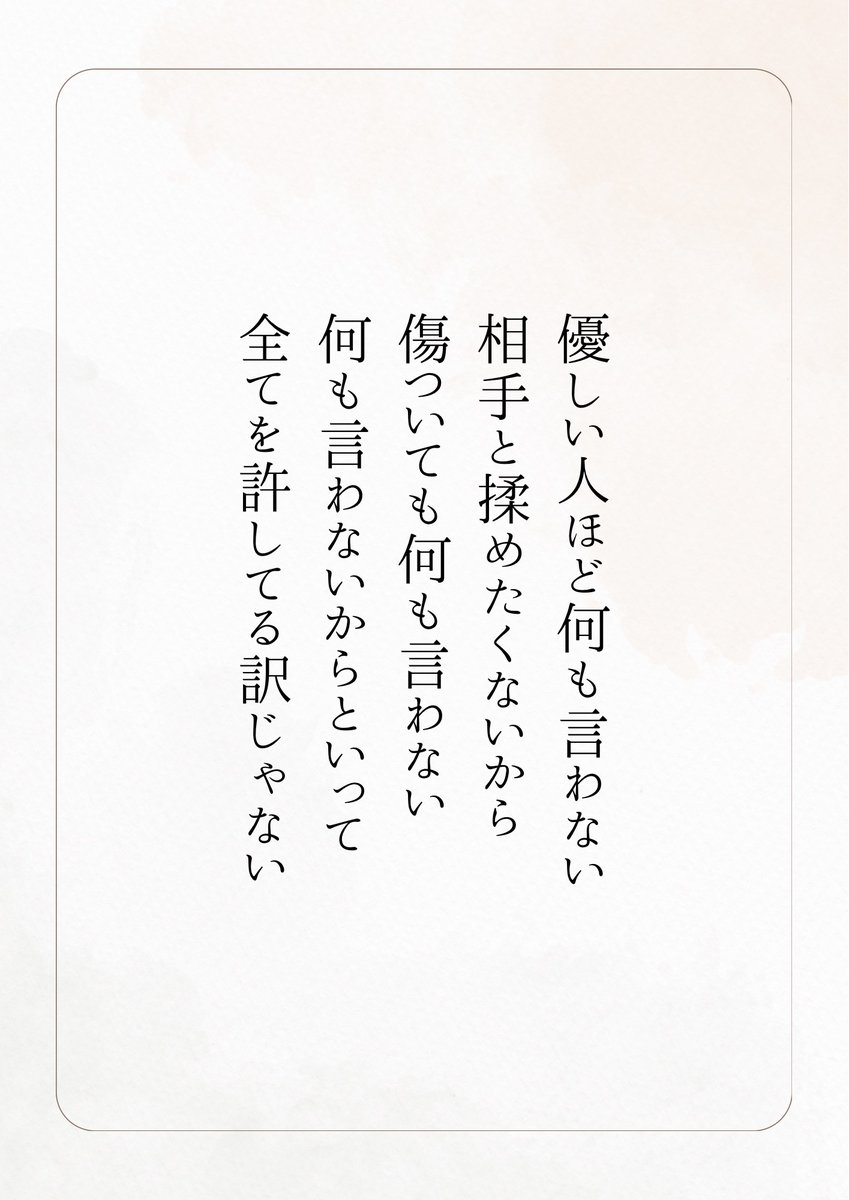 優しい人ほど何も言わない
相手と揉めたくないから
傷ついても何も言わない
何も言わないからといって
全てを許してる訳じゃない